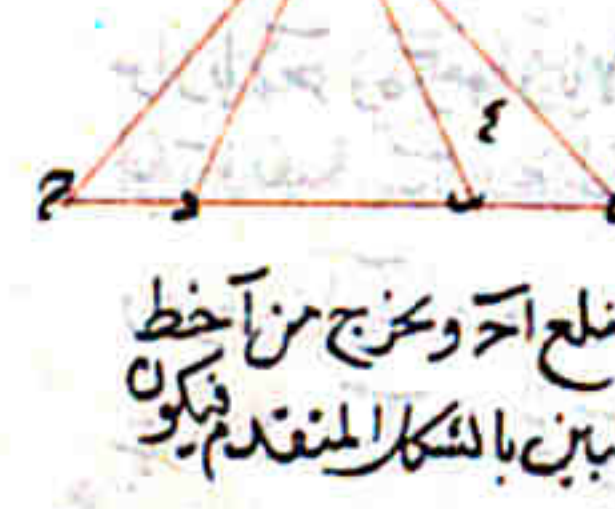 ع
ح د ب
ضلع اح ويخرج من آ خط
بالشكل المتقدم فيكون